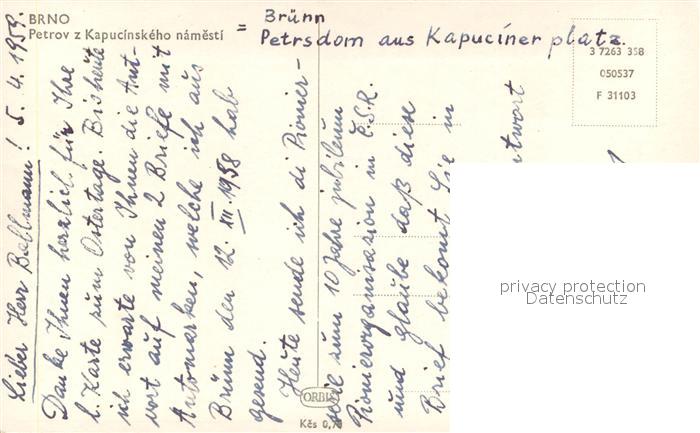 BRNO
Petrov z Kapucínského náměstí
= Brünn
Petrsdom aus Kapucíner platz.
3 7263 358
050537
F 31103
Lieber Herr Ballmann! 5. 4. 1959.
Danke Ihnen herzlich für Ihre
l. Karte zum Ostertage. Bis heute
ich erwarte von Ihnen die Ant-
wort auf meinen 2 Briefe mit
Automarken, welche ich aus
Brünn den 12. XII. 1958 hab
gesend.
Heute sende ich di Pionier-
zum 10 Jahre jubileum
Pionierorganisazion in Č.S.R.
und glaube daß diese
Brief bekomt Sie in
antwort
ORBIS
Kčs 0,70
privacy protection
Datenschutz